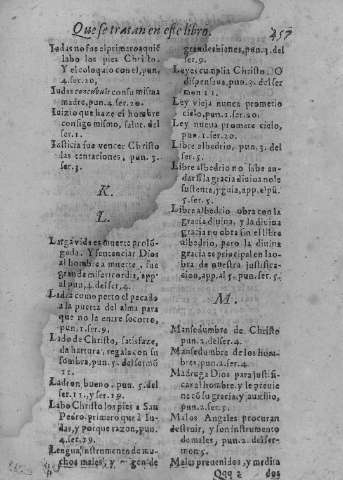 Que se tratan en este libro. 457
Iudas no fue el primero a quiē
labo los pies Christo.
Y el coloquio con el, pun,
4.ser.20.
Iudas concubuit con su misma
madre, pun.4.ser.20.
Iuizio que haze el hombre
consigo mismo, salut. del
ser.1.
Iusticia fue vencer Christo
las tentaciones, pun. 3.
ser.3.
K.
L.
Larga vida es muerte prolō-
gada. Y sentenciar Dios
al hombre a muerte, fue
grande misericordia, app.
al pun.4.del ser.4.
Ladra como perro el pecado
a la puerta del alma para
que no la entre socorro,
pun.1.ser.9.
Lado de Christo, satisfaze,
da hartura, regala con su
sombra, pun.5. del sermō
Ladron bueno. pun.5.del
ser.11., y ser.19.
Labo Christo los pies a San
Pedro primero que a Iu-
das, y porque razon, pun.
4.ser.29.
Lengua, instrumento de mu-
chos males, y origen de
grandes bienes, pun.1.del
ser.9.
Leyes cumplia Christo. O
dispensaua, pun.3. del ser
mon 11.
Ley vieja nunca prometio
cielo, pun.1.ser.20.
Ley nueua promete cielo,
pun.1.ser.20.
Libre albedrio, pun.3. del
ser.5.
Libre albedrio no sabe an-
dar si la gracia diuina no le
sustenta, y guia, app.el pū.
5.ser.5.
Libre albedrio obra con la
gracia diuina, y la diuina
gracia no obra sin el libre
albedrio, pero la diuina
gracia es principal en la o-
bra de nuestra justifica-
cion, app.al 5. pun.ser.5.
M.
Mansedumbre de Christo
pun.2.del ser.4.
Mansedumbre de los hom-
bres, pun.2.del ser.4.
Madruga Dios para justifi-
car al hombre, y le preuie
ne cō su gracia, y auxilio,
pun.2.ser.5.
Malos Angeles procuran
destruir, y son instrumento
de males, pun.2.del ser-
mon.5.
Males preuenidos, y medita
Qqq 2 dos